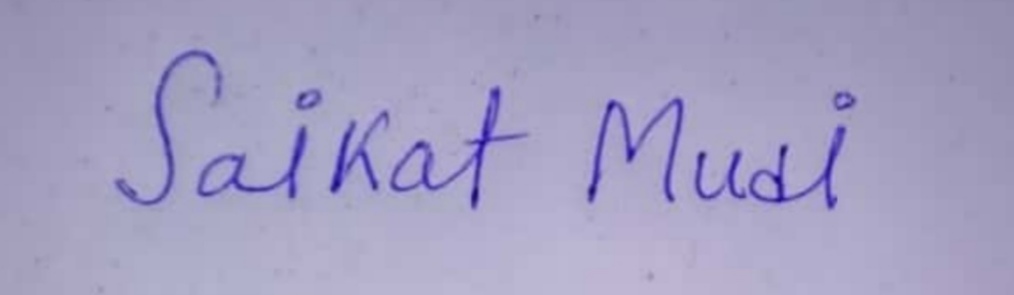 Saikat Mudi